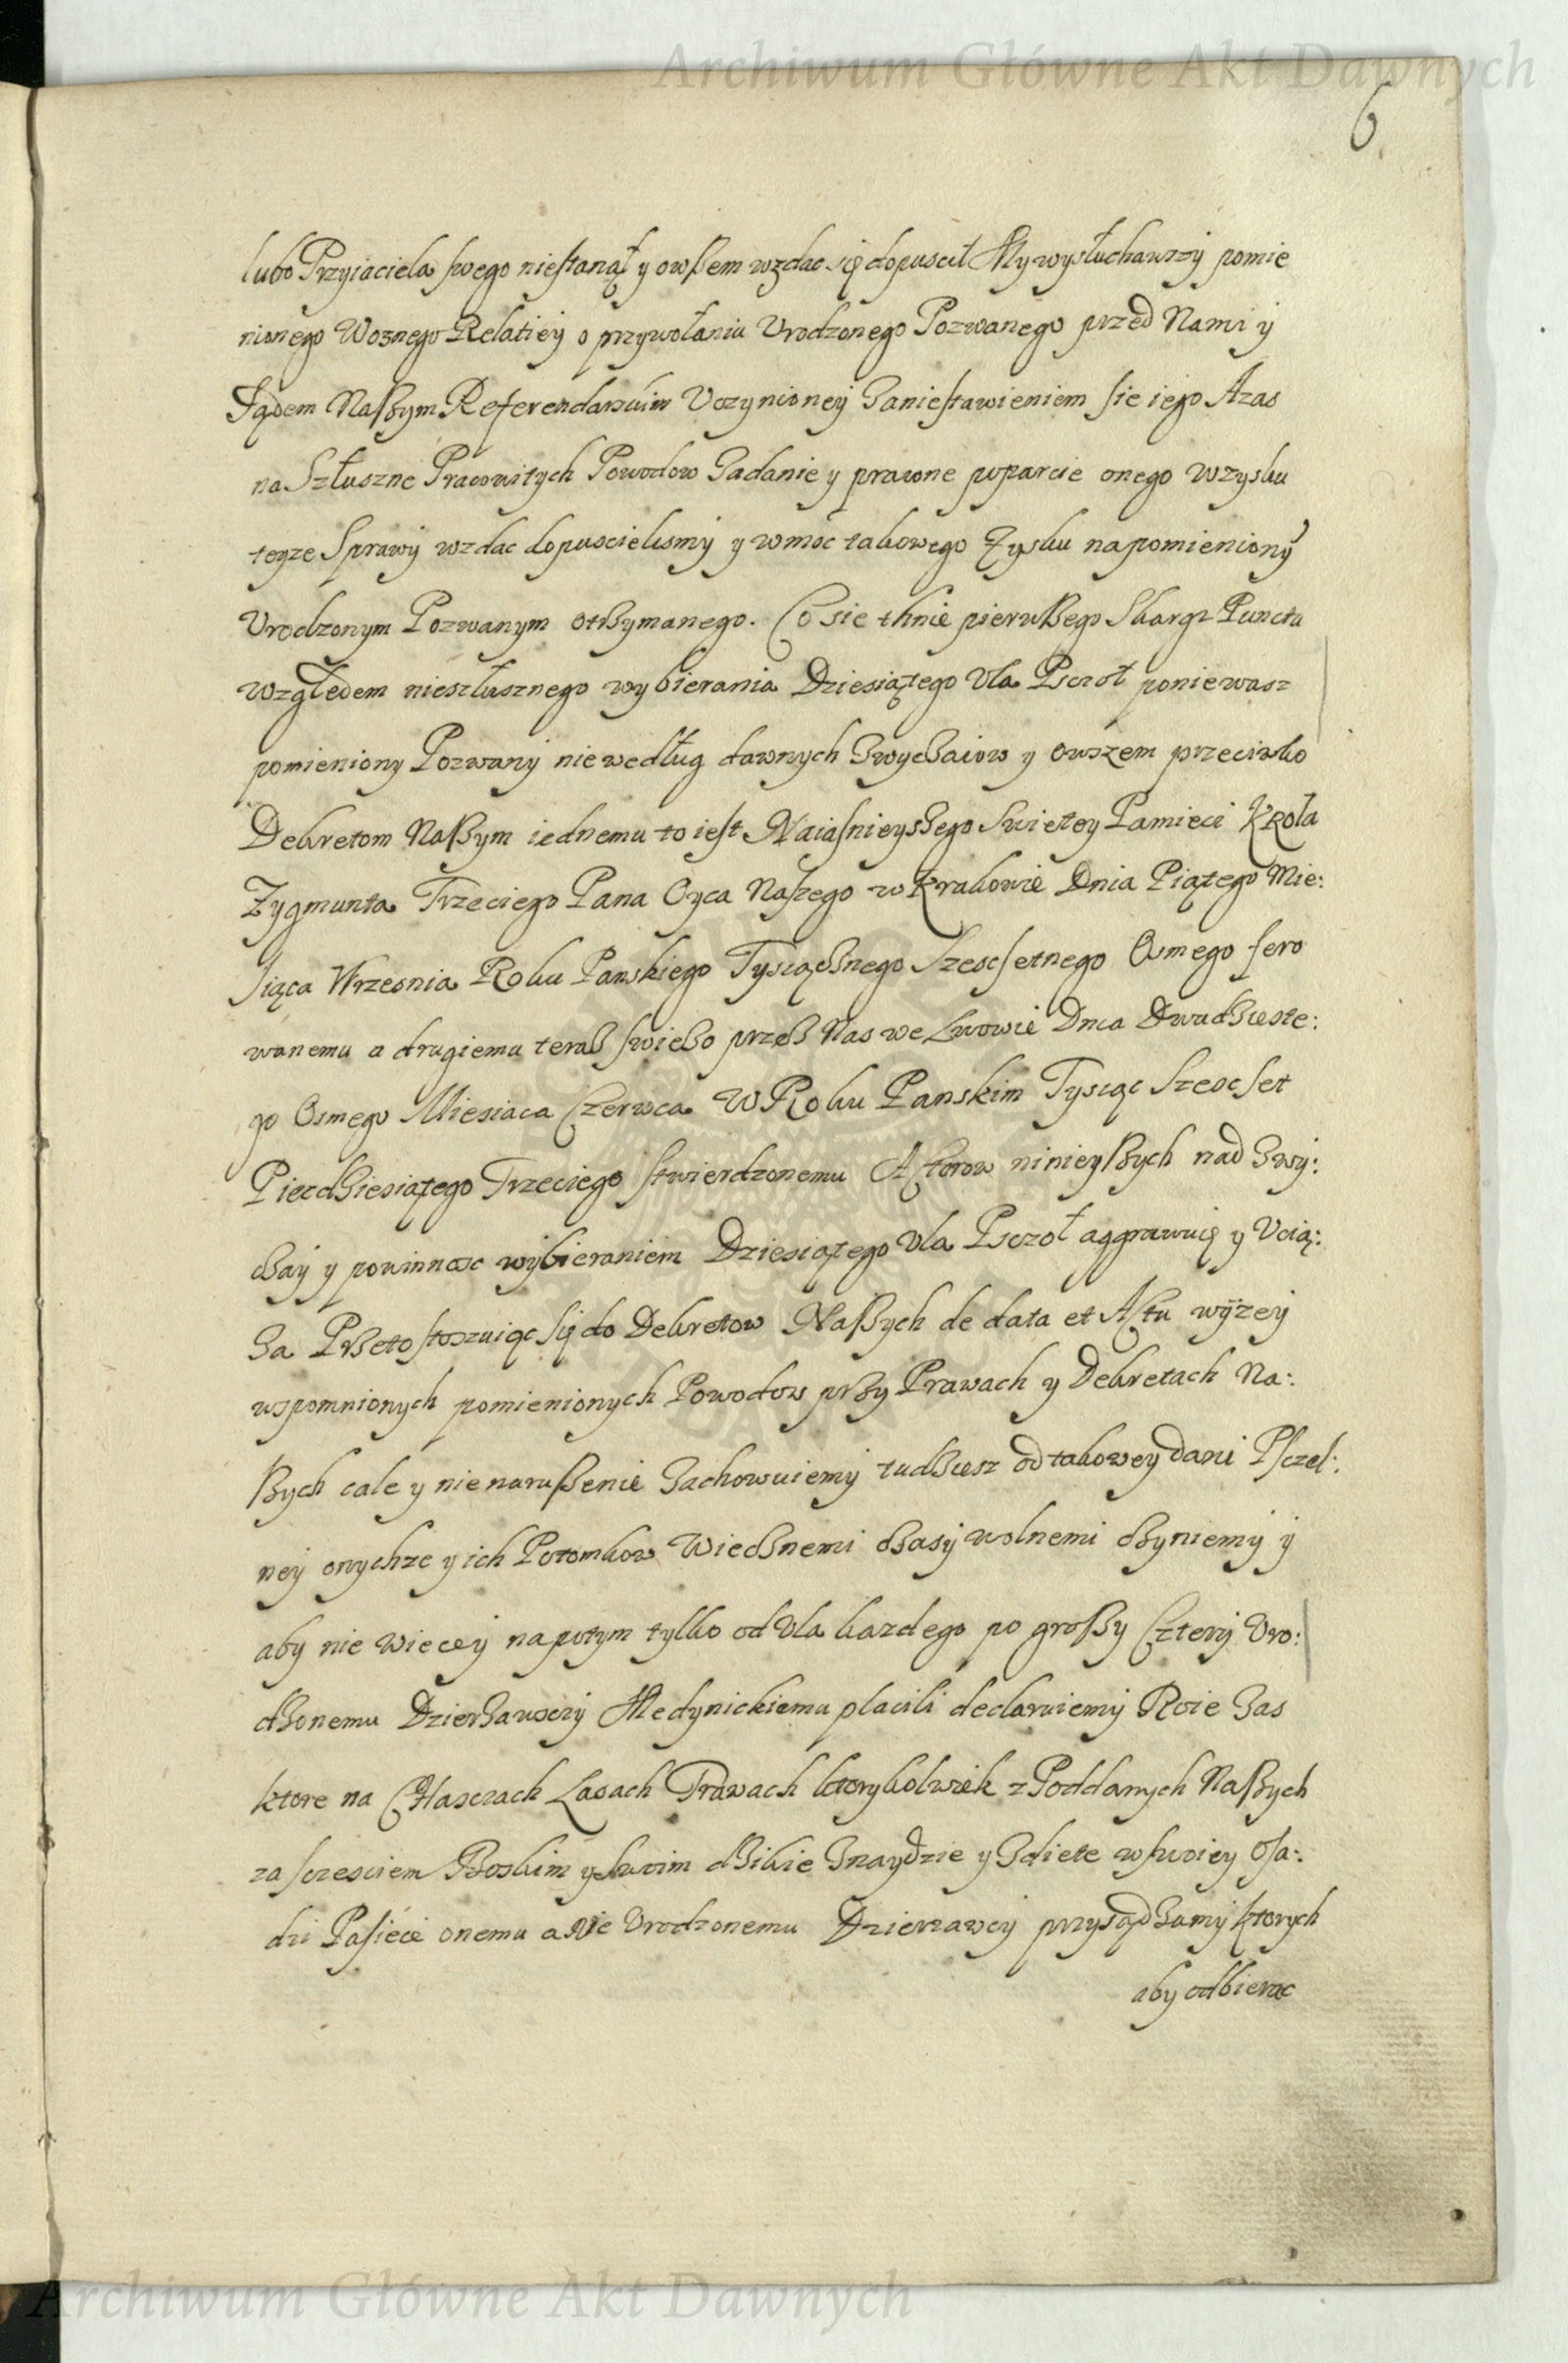 Archiwum Główne Akt Dawnych
6
lubo Przyiaciela swego niestanął y owszem wzdac się dopuscił My wysłuchawszy pomie
nionego Woznego Relatiey o przywołaniu Urodzonego Pozwanego przed Nami y
Sądem Naszym Referendarskim Uczynioney Zaniestawieniem sie iego Azas
na Szłuszne Pracowitych Powodow Ządanie y prawne poparcie onego Wzysku
teyze Sprawy wzdac dopuscielismy y wmoc takowego Zysku napomieniony
Urodzonym Pozwanym otrzymanego. Co sie thnie pierwszego Skargi Punctu
Względem nieszłusznego wybierania Dziesiątego Ula Psczoł poniewasz
pomieniony Pozwany niewedług dawnych Zwyczaiow y owszem przeciwko
Dekretom Naszym iednemu to iest Naiasnieyszego Swietey Pamieci Krola
Zygmunta Trzeciego Pana Oyca Naszego w Krakowie Dnia Piątego Mie:
siąca Wrzesnia Roku Panskiego Tysiącznego Szescsetnego Osmego fero
wanemu a drugiemu teraz swiezo przez Nas we Lwowie Dnia Dwudzieste:
go Osmego Miesiaca Czerwca W Roku Panskim Tysiąc Szescset
Piecdziesiątego Trzeciego stwierdzonemu Actorow ninieyszych nad Zwy:
czay y powinnosc wybieraniem Dziesiątego Ula Psczoł aggrawuię y Ucią:
za Przeto stoszuiąc się do Dekretow Naszych de data et Actu wyzey
wspomnionych pomienionych Powodow przy Prawach y Dekretach Na:
szych cale y nienaruszenie Zachowuiemy tudziesz od takowey dani Psczel:
ney onychze y ich Potomkow Wiecznemi czasy wolnemi czyniemy y
aby nie wiecey napotym tylko od Ula kazdego po groszy Cztery Uro:
dzonemu Dzierzawczy Medynickiemu placili declaruiemy Roie Zas
ktore na Chasczach Lasach Trawach ktorykolwiek z Poddanych Naszych
za sczesciem Boskim y swoim dzikie Znaydzie y Zdiete w swoiey Osa:
dzi Pasiece onemu a nie Urodzonemu Dzierzawcy przysądzamy ktorych
aby odbierac
Archiwum Główne Akt Dawnych